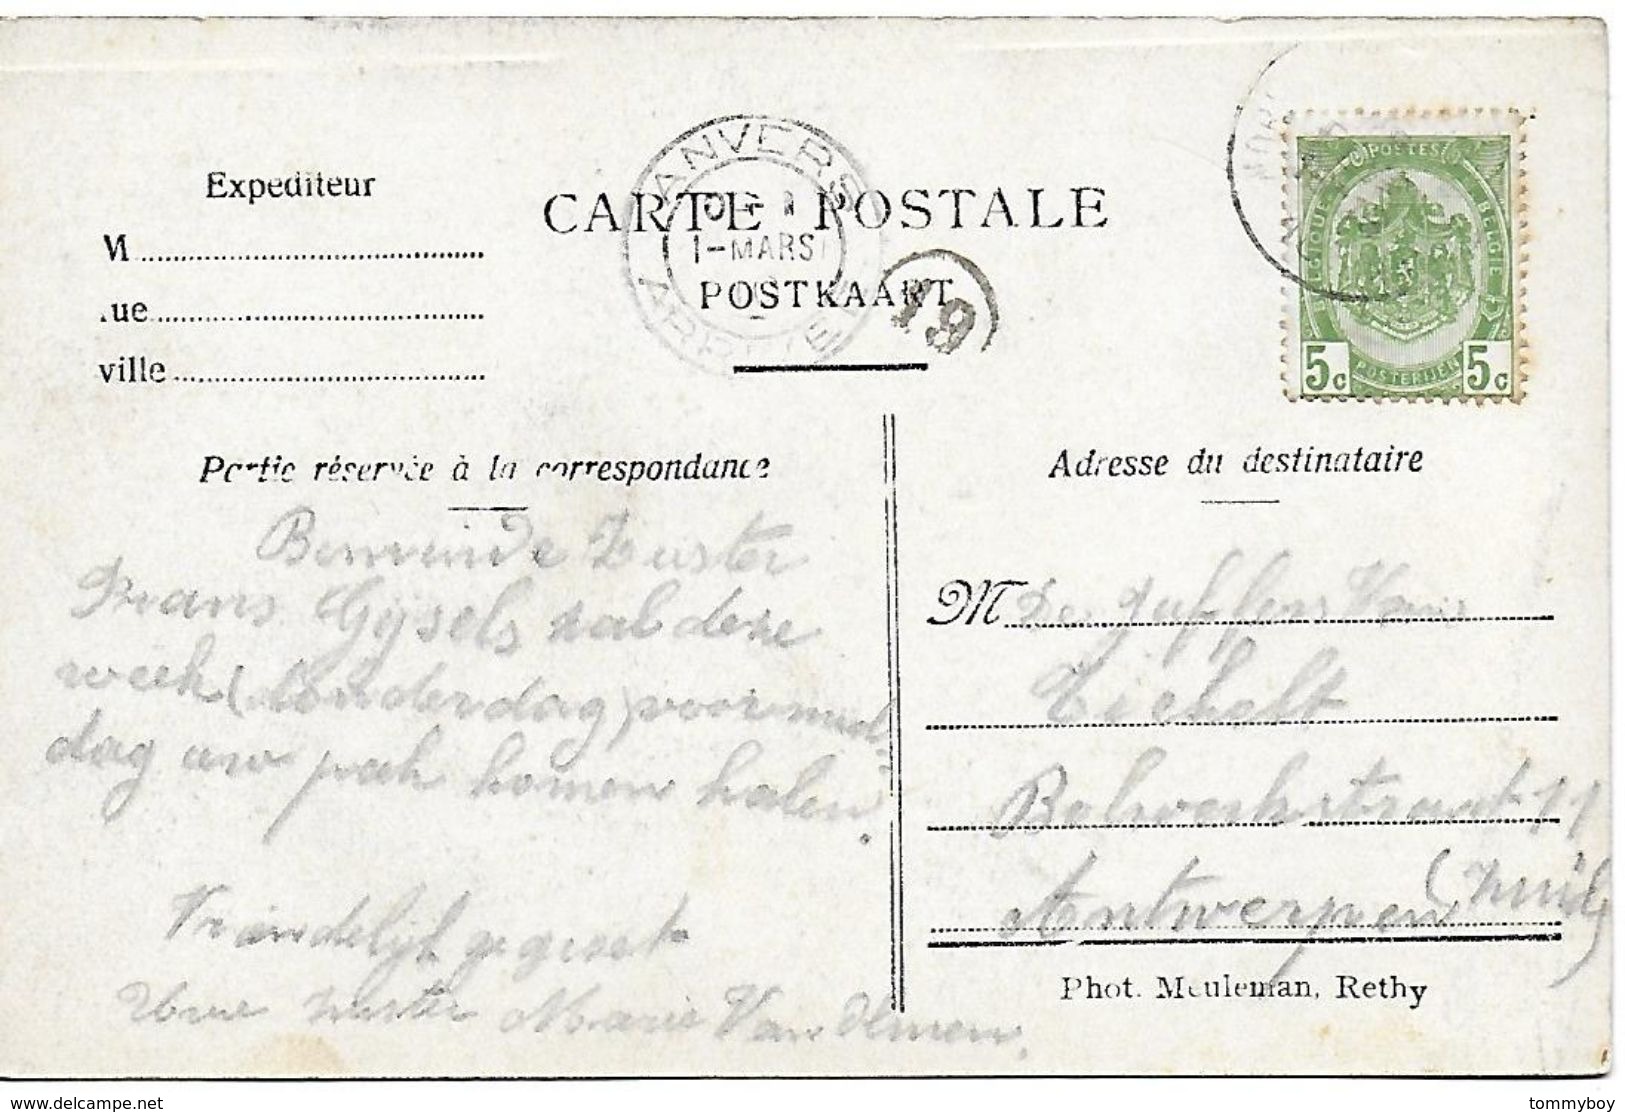 Expediteur
M
ue
ville
CARTE POSTALE
POSTKAART
ANVERS
1-MARS
19
POSTES
BELGIE
5c 5c
POSTERIJEN
Partie réservée à la correspondance
Adresse du destinataire
Beminde Zuster
Frans Gysels zal deze
week (donderdag) voormid-
dag uw pak komen halen.
Vriendelijk gegroet
Uwe zuster Marie Van Olmen.
M De
Bolwerkstraat 11
Antwerpen (Zuid)
Phot. Meuleman, Rethy
www.delcampe.net
tommyboy